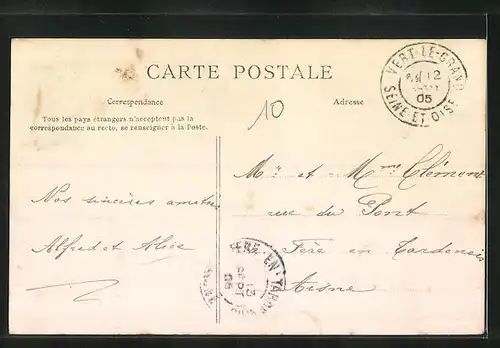 CARTE POSTALE
Correspondance
Adresse
10
Tous les pays étrangers n'acceptent pas la
correspondance au recto, se renseigner à la Poste.
VERT-LE-GRAND
12
05
SEINE-ET-OISE
Nos sincères amitiés
Alfred et Alice
Mr et Mme Clément
rue du Pont
Fère en Tardenois
Aisne
FÈRE-EN-TARDENOIS
13
SEPT
05
AISNE